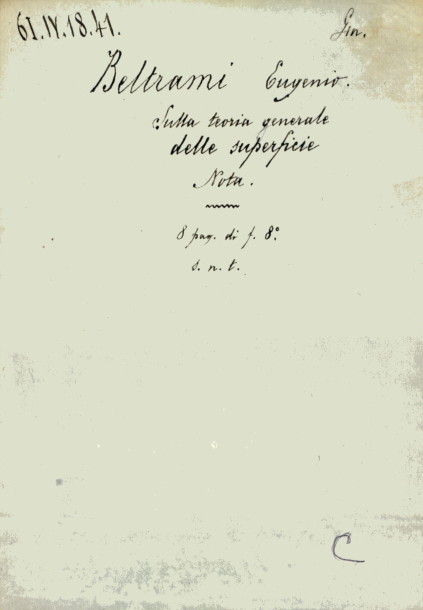 61.IV.18.41.
Gin.
Beltrami Eugenio.
Sulla teoria generale
delle superficie
Nota.
8 pag. di f. 8º.
s. n. t.
C